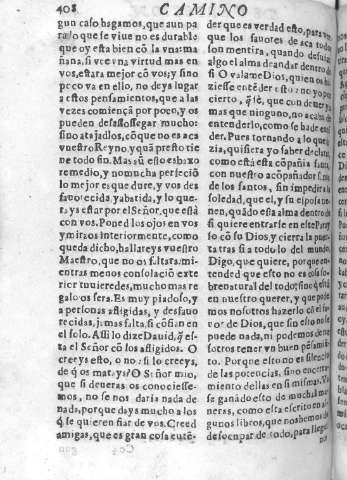 408 CAMINO
gun caso hagamos, que aun pa
ra lo que se viue no es durable
que oy esta bien cõ la vna: ma
ñana, si vee vna virtud mas en
vos, estara mejor cõ vos; y sino
poco va en ello, no deys lugar
a estos pensamientos, que a las
vezes comiença por poco, y os
pueden desassossegar mucho:
sino atajadlos, cõ que no es aca
vuestro Reyno, y quã presto tie
ne todo fin. Mas aũ esto es baxo
remedio, y no mucha perfeciõ
lo mejor es que dure, y vos des
fauorecida, y abatida, y lo que
rays estar por el Señor, que està
con vos. Poned los ojos en vos
y miraos interiormente, como
queda dicho, hallareys vuestro
Maestro, que no os faltara: mi-
entras menos consolaciõ exte
rior tuuieredes, mucho mas re
galo os sera. Es muy piadoso, y
a personas afligidas, y desfauo
recidas, jamas falta, si cõfian en
el solo. Assi lo dize Dauid, q̃ es
ta el Señor cõ los afligidos. O
creeys esto, o no, si lo creeys,
de q̃ os matays? O Señor mio,
que si deueras os conociesse-
mos, no se nos daria nada de
nada, porque days mucho a los
q̃ se quieren fiar de vos. Creed
amigas, que es gran cosa entẽ-
der que es verdad esto, para ver
que los fauores de aca todos
son mentira, quando desuian
algo el alma de andar dentro de
si O valame Dios, quien os hi
ziesse entẽder esto: no yo por
cierto, q̃ sè, que con deuer yo
mas que ninguno, no acabo de
entenderlo, como se ha de entẽ
der. Pues tornando a lo que de
zia, quisiera yo saber declarar,
como està esta cõpañia santa,
con nuestro acõpañador, santo
de los santos, sin impedir a la
soledad, que el, y su esposa tie-
nen, quãdo esta alma dentro de
si quiere entrarse en este Paray
so cõ su Dios, y cierra la puer
ta tras si a todo lo del mundo,
Digo, que quiere, porque en-
tended que esto no es cosa so-
brenatural del todo; sino q̃ està
en nuestro querer, y que pode
mos nosotros hazerlo cõ el fa
uor de Dios, que sin esto no se
puede nada, ni podemos de no
sotros tener vn buen pẽsamiẽ-
to. Porque esto no es silencio
de las potencias, sino encerra
miento dellas en si mismas. Va
se ganãdo esto de muchas ma
neras, como esta escrito en al-
gunos libros, que nos hemos de
desocupar de todo, para llegar